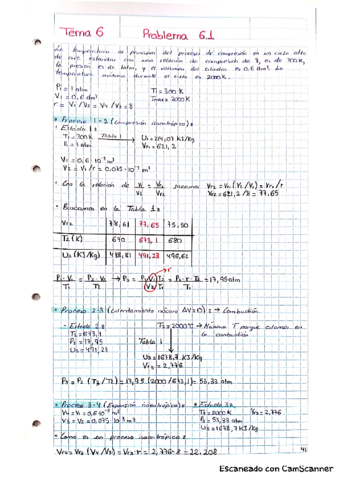 Tema 6 Problema 6.1
La temperatura al principio del proceso de compresión en un ciclo Otto
de aire estándar con una relación de compresión de 8, es de 300K,
la presión es de 1atm, y el volumen del cilindro es 0,6 dm³. La
temperatura máxima durante el ciclo es 2000K.
P1 = 1 atm T1 = 300K
V1 = 0,6 dm³ Tmax = 2000K
r = V1/V2 = V4/V3 = 8
• Proceso 1-2 (Compresión isentrópica):
- Estado 1:
T1 = 300K Tabla 1 U1 = 214,07 KJ/Kg
P1 = 1 atm Vr1 = 621,2
V1 = 0,6·10⁻³ m³
V2 = V1/r = 0,075·10⁻³ m³
• Con la relación de V2/V1 = Vr2/Vr1 sacamos Vr2 = Vr1 (V2/V1) = Vr1/r
Vr2 = 621,2/8 = 77,65
• Buscamos en la Tabla 1:
Vr2 78,61 77,65 75,50
T2(K) 670 673,1 680
U2(KJ/Kg) 488,81 491,23 496,62
P1·V1/T1 = P2·V2/T2 → P2 = P1 V1 T2/V2 T1 = P1·r·T2/T1 = 17,95 atm
r
• Proceso 2-3 (Calentamiento isócoro ΔV=0): → Combustión
- Estado 2: T3 = 2000°C → Máxima T porque estamos en
T2 = 673,1 la combustión
P2 = 17,95 Tabla 1
U2 = 491,23 U3 = 1678,7 KJ/Kg
Vr3 = 2,776
P3 = P2 (T3/T2) = 17,95 (2000/673,1) = 53,33 atm
• Proceso 3-4 (Expansión isentrópica): • Estado 3:
V4 = V1 = 0,6·10⁻³ m³ T3 = 2000K Vr3 = 2,776
V3 = V2 = 0,075·10⁻³ m³ P3 = 53,33 atm
U3 = 1678,7 KJ/Kg
• Como es un proceso isentrópico:
Vr4 = Vr3 (V4/V3) = Vr3·r = 2,776·8 = 22,208
41
Escaneado con CamScanner